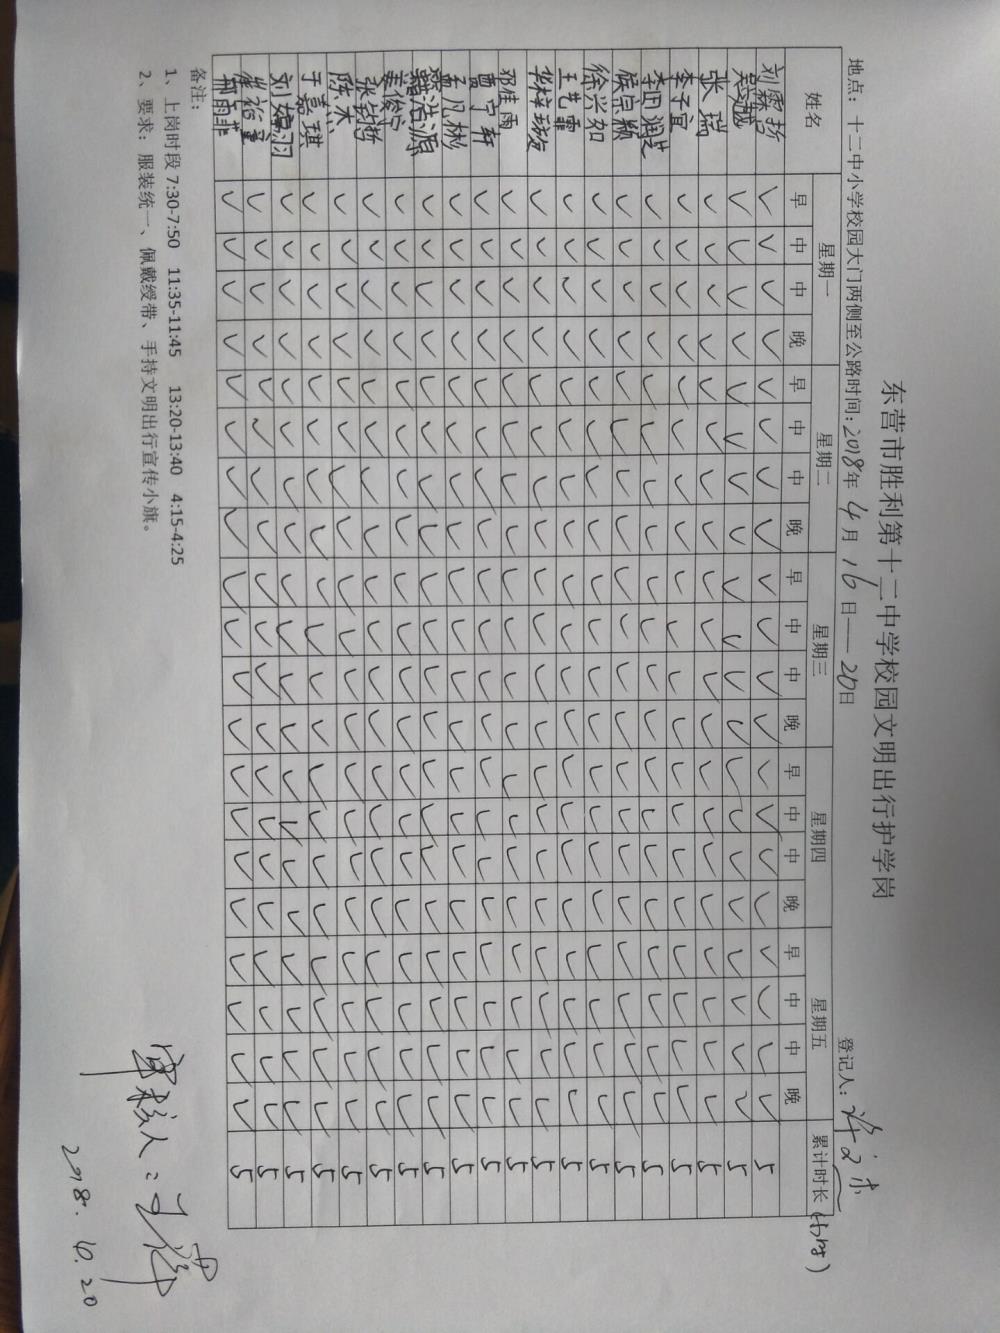 东营市胜利第十二中学校园文明出行护学岗
地点：十二中小学校园大门两侧至公路时间：2018年4月16日——20日 登记人：
姓名 星期一 星期二 星期三 星期四 星期五 累计时长(小时)
早 中 中 晚 早 中 中 晚 早 中 中 晚 早 中 中 晚 早 中 中 晚
刘霖哲 ✓ ✓ ✓ ✓ ✓ ✓ ✓ ✓ ✓ ✓ ✓ ✓ ✓ ✓ ✓ ✓ ✓ ✓ ✓ ✓ 5
✓ ✓ ✓ ✓ ✓ ✓ ✓ ✓ ✓ ✓ ✓ ✓ ✓ ✓ ✓ ✓ ✓ ✓ ✓ ✓ 5
张瑞 ✓ ✓ ✓ ✓ ✓ ✓ ✓ ✓ ✓ ✓ ✓ ✓ ✓ ✓ ✓ ✓ ✓ ✓ ✓ ✓ 5
李子宜 ✓ ✓ ✓ ✓ ✓ ✓ ✓ ✓ ✓ ✓ ✓ ✓ ✓ ✓ ✓ ✓ ✓ ✓ ✓ ✓ 5
李田润芝 ✓ ✓ ✓ ✓ ✓ ✓ ✓ ✓ ✓ ✓ ✓ ✓ ✓ ✓ ✓ ✓ ✓ ✓ ✓ ✓ 5
侯宗颖 ✓ ✓ ✓ ✓ ✓ ✓ ✓ ✓ ✓ ✓ ✓ ✓ ✓ ✓ ✓ ✓ ✓ ✓ ✓ ✓ 5
徐兴如 ✓ ✓ ✓ ✓ ✓ ✓ ✓ ✓ ✓ ✓ ✓ ✓ ✓ ✓ ✓ ✓ ✓ ✓ ✓ ✓ 5
王艺霏 ✓ ✓ ✓ ✓ ✓ ✓ ✓ ✓ ✓ ✓ ✓ ✓ ✓ ✓ ✓ ✓ ✓ ✓ ✓ ✓ 5
✓ ✓ ✓ ✓ ✓ ✓ ✓ ✓ ✓ ✓ ✓ ✓ ✓ ✓ ✓ ✓ ✓ ✓ ✓ ✓ 5
邓佳雨 ✓ ✓ ✓ ✓ ✓ ✓ ✓ ✓ ✓ ✓ ✓ ✓ ✓ ✓ ✓ ✓ ✓ ✓ ✓ ✓ 5
曹宁轩 ✓ ✓ ✓ ✓ ✓ ✓ ✓ ✓ ✓ ✓ ✓ ✓ ✓ ✓ ✓ ✓ ✓ ✓ ✓ ✓ 5
孟凡彬 ✓ ✓ ✓ ✓ ✓ ✓ ✓ ✓ ✓ ✓ ✓ ✓ ✓ ✓ ✓ ✓ ✓ ✓ ✓ ✓ 5
✓ ✓ ✓ ✓ ✓ ✓ ✓ ✓ ✓ ✓ ✓ ✓ ✓ ✓ ✓ ✓ ✓ ✓ ✓ ✓ 5
姜俊宇 ✓ ✓ ✓ ✓ ✓ ✓ ✓ ✓ ✓ ✓ ✓ ✓ ✓ ✓ ✓ ✓ ✓ ✓ ✓ ✓ 5
张钧哲 ✓ ✓ ✓ ✓ ✓ ✓ ✓ ✓ ✓ ✓ ✓ ✓ ✓ ✓ ✓ ✓ ✓ ✓ ✓ ✓ 5
陈冰 ✓ ✓ ✓ ✓ ✓ ✓ ✓ ✓ ✓ ✓ ✓ ✓ ✓ ✓ ✓ ✓ ✓ ✓ ✓ ✓ 5
于嘉琪 ✓ ✓ ✓ ✓ ✓ ✓ ✓ ✓ ✓ ✓ ✓ ✓ ✓ ✓ ✓ ✓ ✓ ✓ ✓ ✓ 5
✓ ✓ ✓ ✓ ✓ ✓ ✓ ✓ ✓ ✓ ✓ ✓ ✓ ✓ ✓ ✓ ✓ ✓ ✓ ✓ 5
✓ ✓ ✓ ✓ ✓ ✓ ✓ ✓ ✓ ✓ ✓ ✓ ✓ ✓ ✓ ✓ ✓ ✓ ✓ ✓ 5
邢雨菲 ✓ ✓ ✓ ✓ ✓ ✓ ✓ ✓ ✓ ✓ ✓ ✓ ✓ ✓ ✓ ✓ ✓ ✓ ✓ ✓ 5
备注：
1、上岗时段 7:30-7:50 11:35-11:45 13:20-13:40 4:15-4:25
2、要求：服装统一、佩戴绶带、手持文明出行宣传小旗。
审核人：
2018.4.20